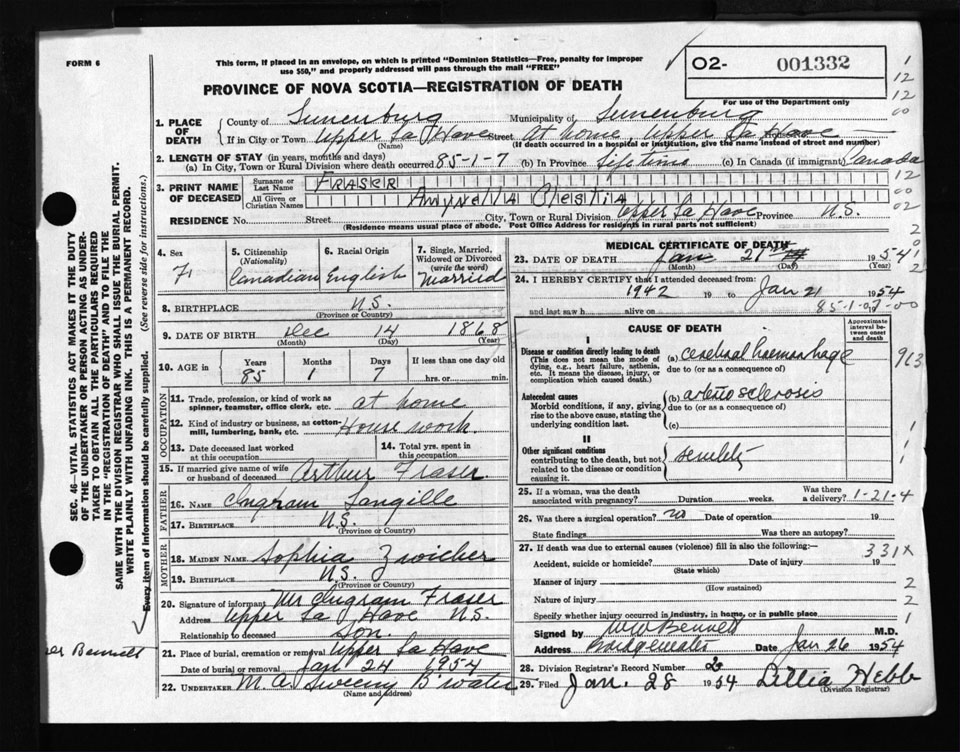 FORM 6
This form, if placed in an envelope, on which is printed "Dominion Statistics—Free, penalty for improper
use $50," and properly addressed will pass through the mail "FREE"
O2- 001332
For use of the Department only
PROVINCE OF NOVA SCOTIA—REGISTRATION OF DEATH
1. PLACE OF DEATH
County of Lunenburg Municipality of Lunenburg
If in City or Town Upper La Have Street At home, Upper La Have
(Name) (If death occurred in a hospital or institution, give the name instead of street and number)
2. LENGTH OF STAY (in years, months and days)
(a) In City, Town or Rural Division where death occurred 85-1-7 (b) In Province Life time (c) In Canada (if immigrant) Canada
3. PRINT NAME OF DECEASED
Surname or Last Name FRASER
All Given or Christian Names
RESIDENCE No. Street City, Town or Rural Division Upper La Have Province N.S.
(Residence means usual place of abode. Post Office Address for residents in rural parts not sufficient)
4. Sex F
5. Citizenship (Nationality) Canadian
6. Racial Origin English
7. Single, Married, Widowed or Divorced (write the word) Married
8. BIRTHPLACE N.S.
(Province or Country)
9. DATE OF BIRTH Dec 14 1868
(Month) (Day) (Year)
10. AGE in Years 85 Months 1 Days 7 If less than one day old hrs. or min.
OCCUPATION
11. Trade, profession, or kind of work as spinner, teamster, office clerk, etc. at home
12. Kind of industry or business, as cotton-mill, lumbering, bank, etc. House work
13. Date deceased last worked at this occupation
14. Total yrs. spent in this occupation
15. If married give name of wife or husband of deceased Arthur Fraser
FATHER
16. NAME Ingram Langille
17. BIRTHPLACE N.S.
(Province or Country)
MOTHER
18. MAIDEN NAME Sophia Zwicker
19. BIRTHPLACE N.S.
(Province or Country)
20. Signature of informant Mr Ingram Fraser
Address Upper La Have N.S.
Relationship to deceased son.
21. Place of burial, cremation or removal Upper La Have
Date of burial or removal Jan 24 1954
22. UNDERTAKER M. A. Sweeny B'water
(Name and address)
MEDICAL CERTIFICATE OF DEATH
23. DATE OF DEATH Jan 21 1954
(Month) (Day) (Year)
24. I HEREBY CERTIFY that I attended deceased from:
1942 19 to Jan 21 1954
and last saw h alive on 19 85-1-07-00
CAUSE OF DEATH
Approximate interval between onset and death
I
Disease or condition directly leading to death
(This does not mean the mode of dying, e.g., heart failure, asthenia, etc. It means the disease, injury, or complication which caused death.)
(a) cerebral haemorrhage
due to (or as a consequence of)
Antecedent causes
Morbid conditions, if any, giving rise to the above cause, stating the underlying condition last.
(b) arterio sclerosis
due to (or as a consequence of)
(c)
II
Other significant conditions
contributing to the death, but not related to the disease or condition causing it.
senility
25. If a woman, was the death associated with pregnancy? Duration weeks. Was there a delivery? 1-21-4
26. Was there a surgical operation? no Date of operation 19
State findings Was there an autopsy?
27. If death was due to external causes (violence) fill in also the following:— 331X
Accident, suicide or homicide? Date of injury 19
(State which)
Manner of injury 2
(How sustained)
Nature of injury 2
Specify whether injury occurred in industry, in home, or in public place 1
Signed by W W Bennett M.D.
Address Bridgewater Date Jan 26 1954
28. Division Registrar's Record Number 2
29. Filed Jan. 28 1954 Lillia Hebb
(Division Registrar)
SEC. 46—VITAL STATISTICS ACT MAKES IT THE DUTY
OF THE UNDERTAKER OR PERSON ACTING AS UNDER-
TAKER TO OBTAIN ALL THE PARTICULARS REQUIRED
IN THE "REGISTRATION OF DEATH" AND TO FILE THE
SAME WITH THE DIVISION REGISTRAR WHO SHALL ISSUE THE BURIAL PERMIT.
WRITE PLAINLY WITH UNFADING INK. THIS IS A PERMANENT RECORD.
Every item of information should be carefully supplied. (See reverse side for instructions.)
Bennett